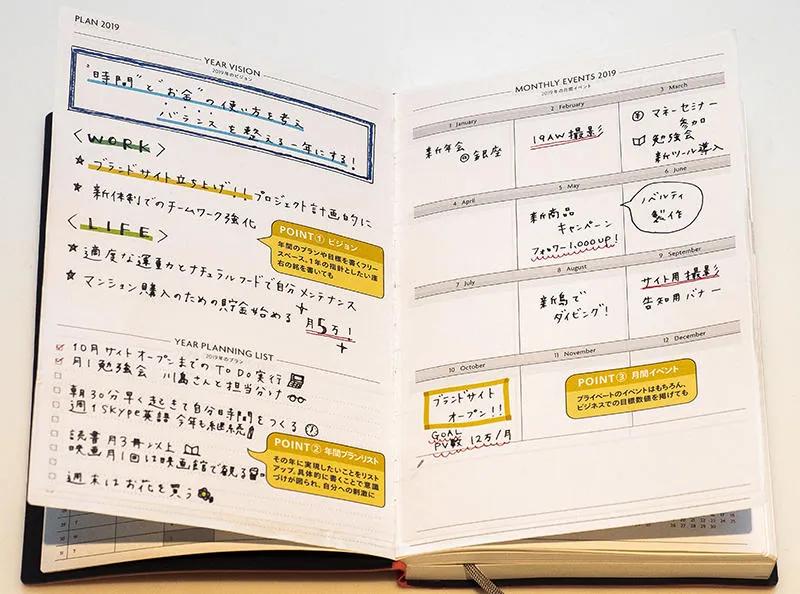 PLAN 2019
YEAR VISION
2019年のビジョン
"時間"と"お金"の使い方を考え
バランスを整える一年にする!
〈WORK〉
★ブランドサイト立ち上げ!!プロジェクト計画的に
★新体制でのチームワーク強化
〈LIFE〉
★適度な運動とナチュラルフードで自分メンテナンス
★マンション購入のための貯金始める 月5万!
POINT① ビジョン
年間のプランや目標を書くフリー
スペース。1年の指針としたい座
右の銘を書いても
YEAR PLANNING LIST
2019年のプラン
10月サイトオープンまでのTO DO実行
月1勉強会 川島さんと担当分け
朝30分早く起きて自分時間をつくる
週1Skype英語 今年も継続!
読書 月3冊以上
映画月1回は映画館で観る
週末はお花を買う
POINT② 年間プランリスト
その年に実現したいことをリスト
アップ。具体的に書くことで意識
づけが図られ、自分への刺激に
MONTHLY EVENTS 2019
2019年の月間イベント
1 January
2 February
3 March
新年会
@銀座
19AW撮影
マネーセミナー
参加
勉強会
新ツール導入
4 April
5 May
6 June
新商品
キャンペーン
フォロワー1,000UP!
ノベルティ
製作
7 July
8 August
9 September
新島で
ダイビング!
サイト用撮影
告知用バナー
10 October
11 November
12 December
ブランドサイト
オープン!!
GOAL
PV数 12万/月
POINT③ 月間イベント
プライベートのイベントはもちろん、
ビジネスでの目標数値を掲げても